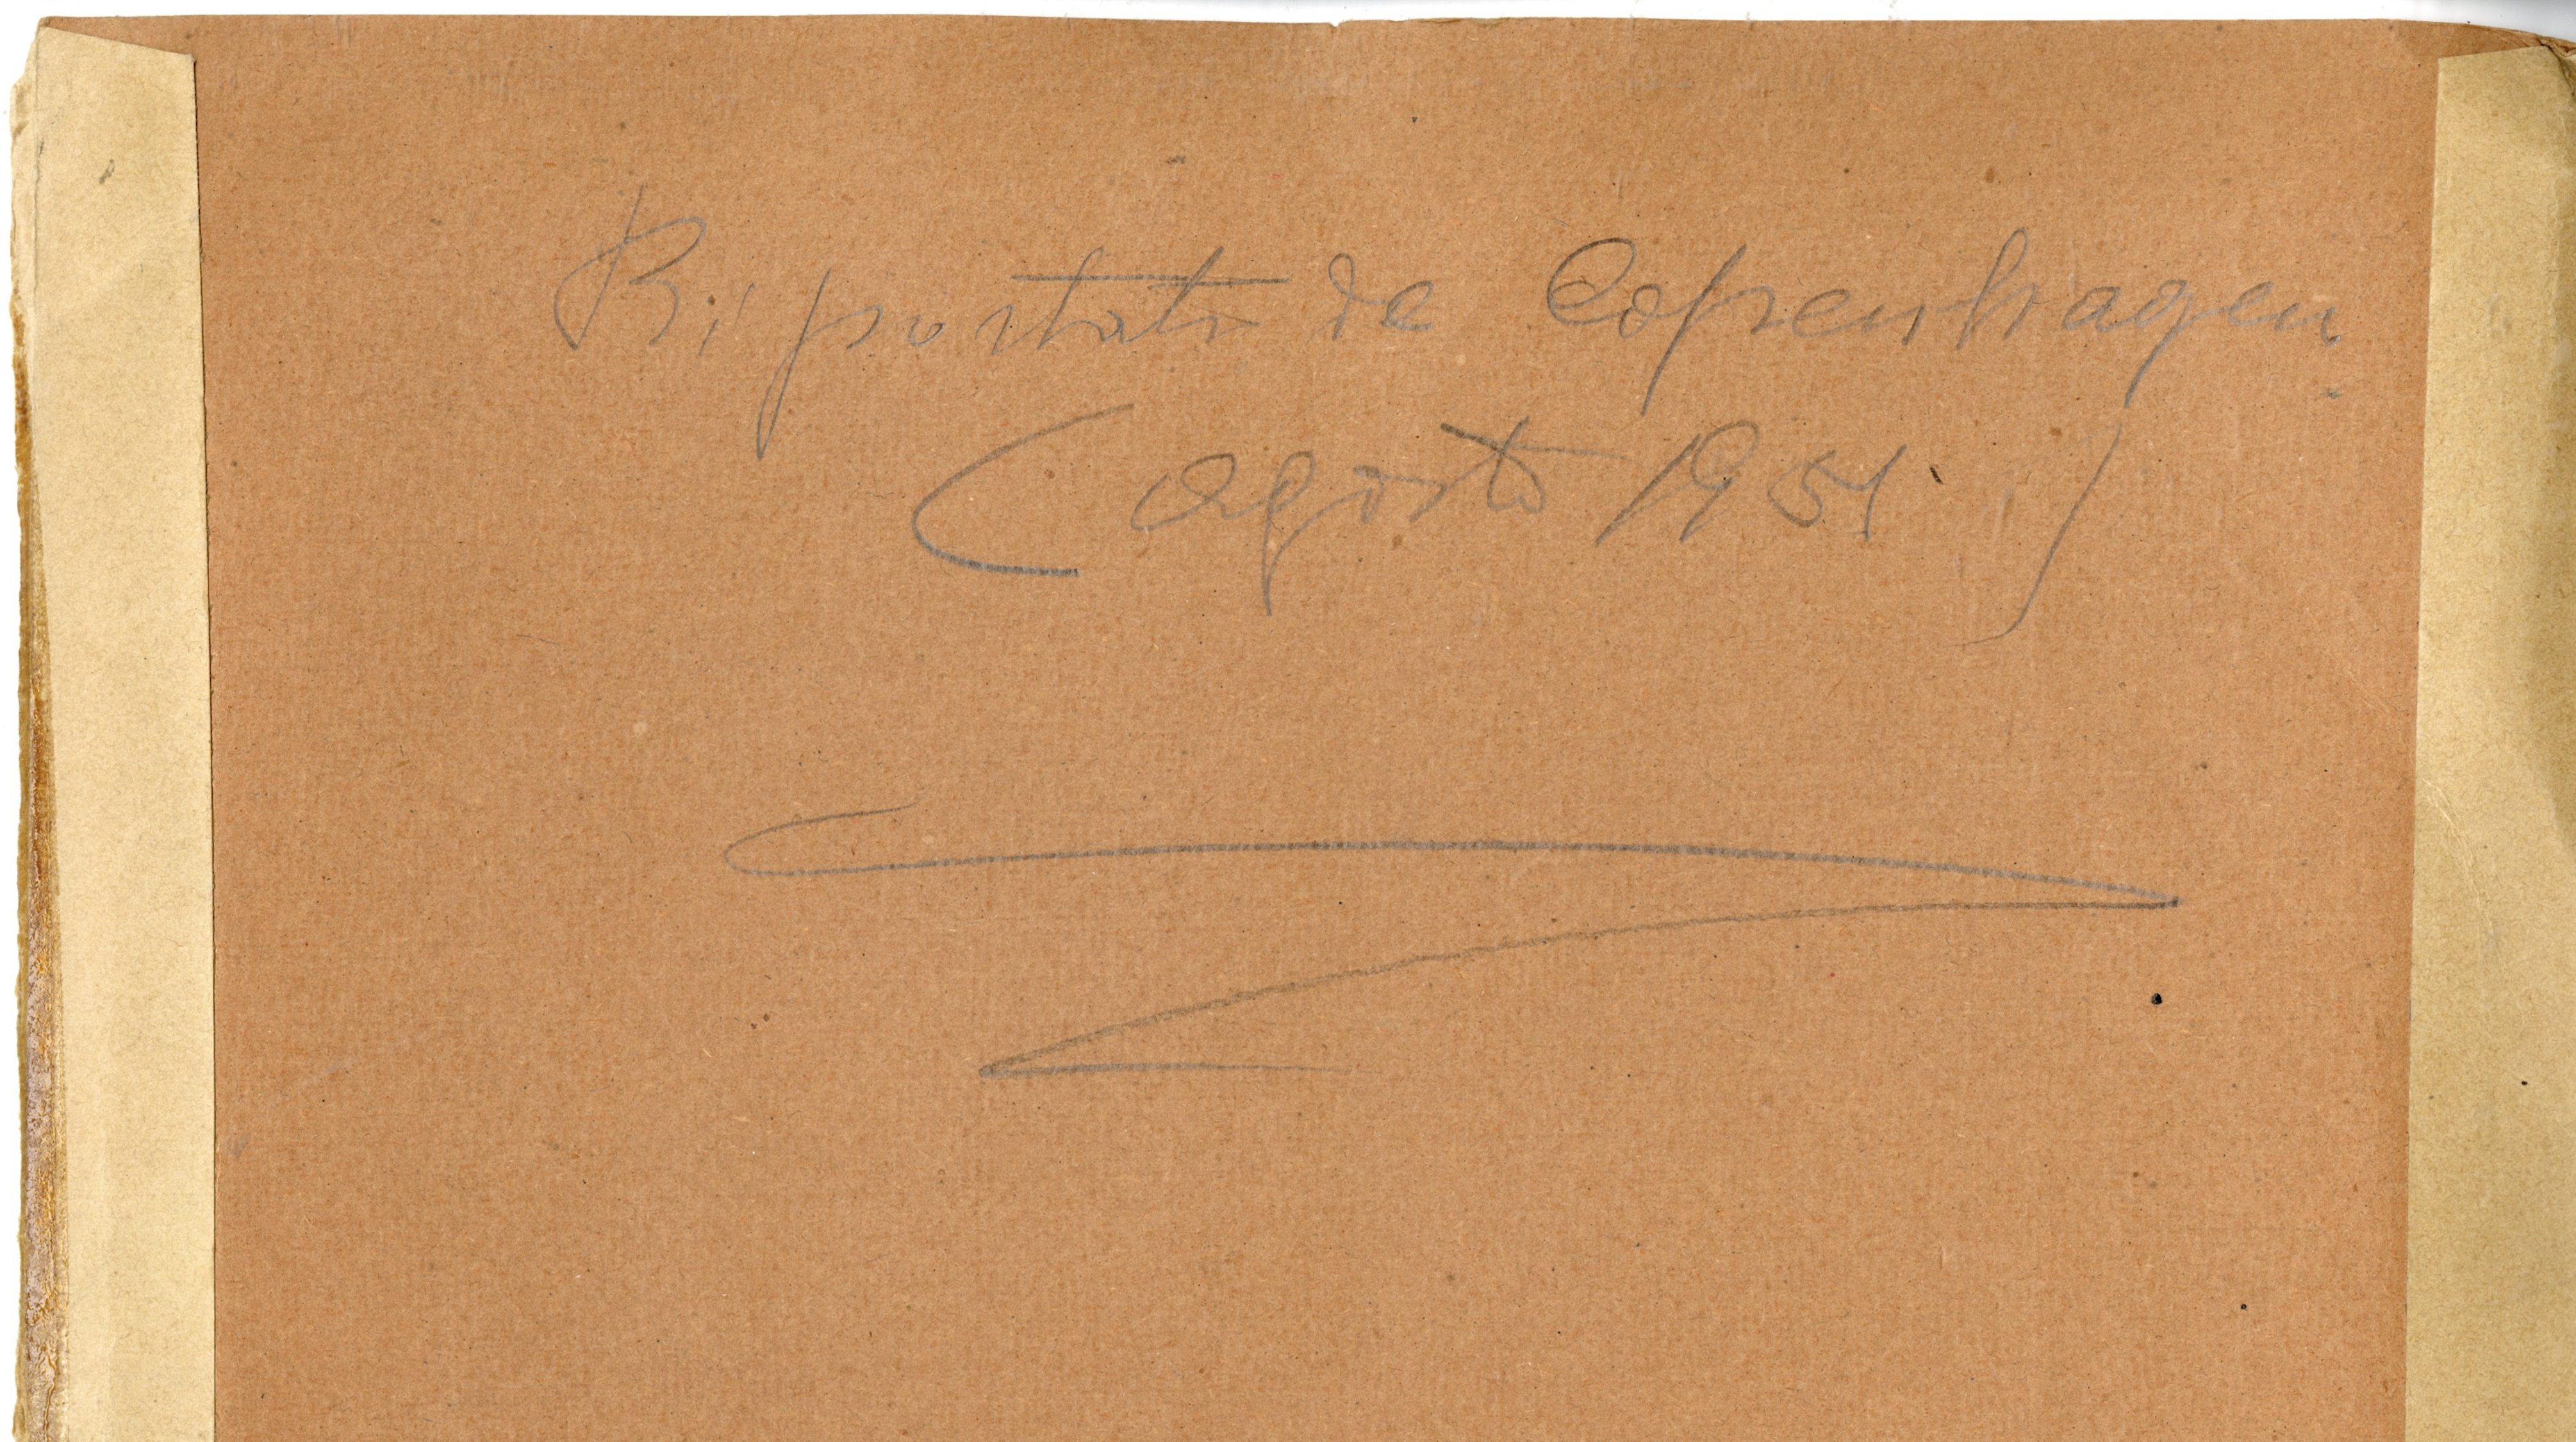 Riportato da Copenhagen
(agosto 1951)